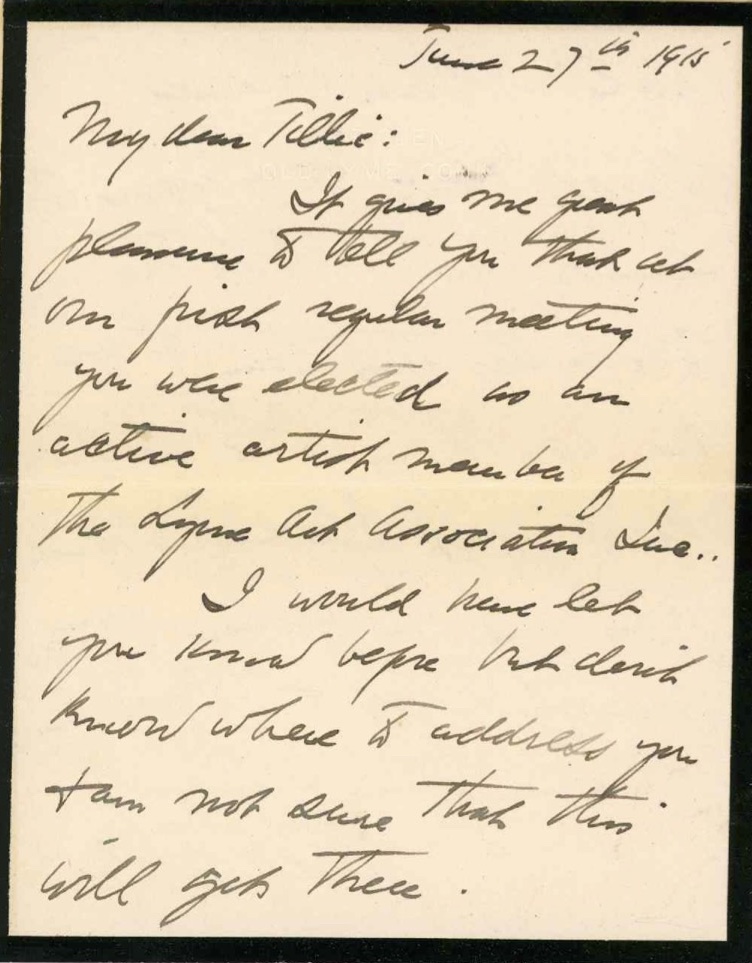 June 27th 1915
My dear Tillie:
It gives me great
pleasure to tell you that at
our first regular meeting
you were elected as an
active artist member of
the Lyme Art Association Inc..
I would have let
you know before but didn't
know where to address you
+ am not sure that this
will get there.